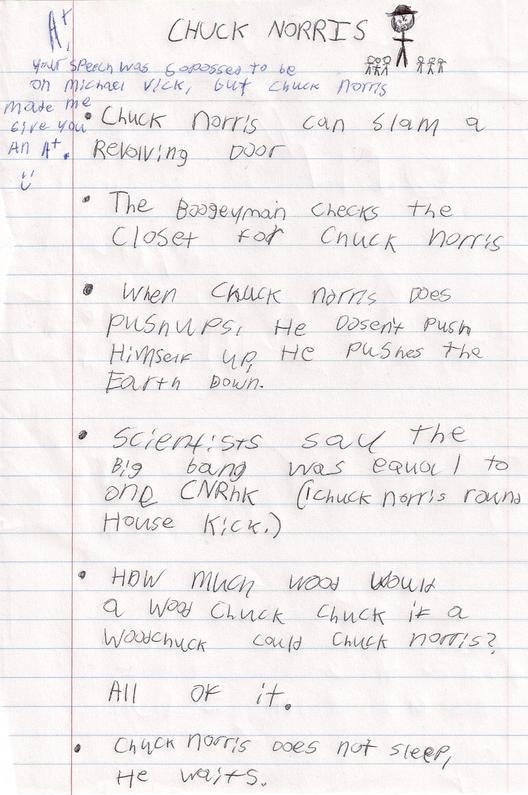 CHUCK NORRIS
A+,
your speech was soposed to be
on michael vick, but chuck norris
made me
Give you
An A+.
• Chuck norris can slam a
Revolving Door
• The Boogeyman checks the
Closet for Chuck norris
• When Chuck norris Does
pushups, He Dosen't push
Himself up, He pushes the
Earth Down.
• Scientists say the
Big bang was equal to
one CNRhk (1chuck norris round
House Kick.)
• How much wood would
a wood chuck chuck if a
woodchuck could chuck norris?
All of it.
• Chuck norris Does not sleep,
He waits.